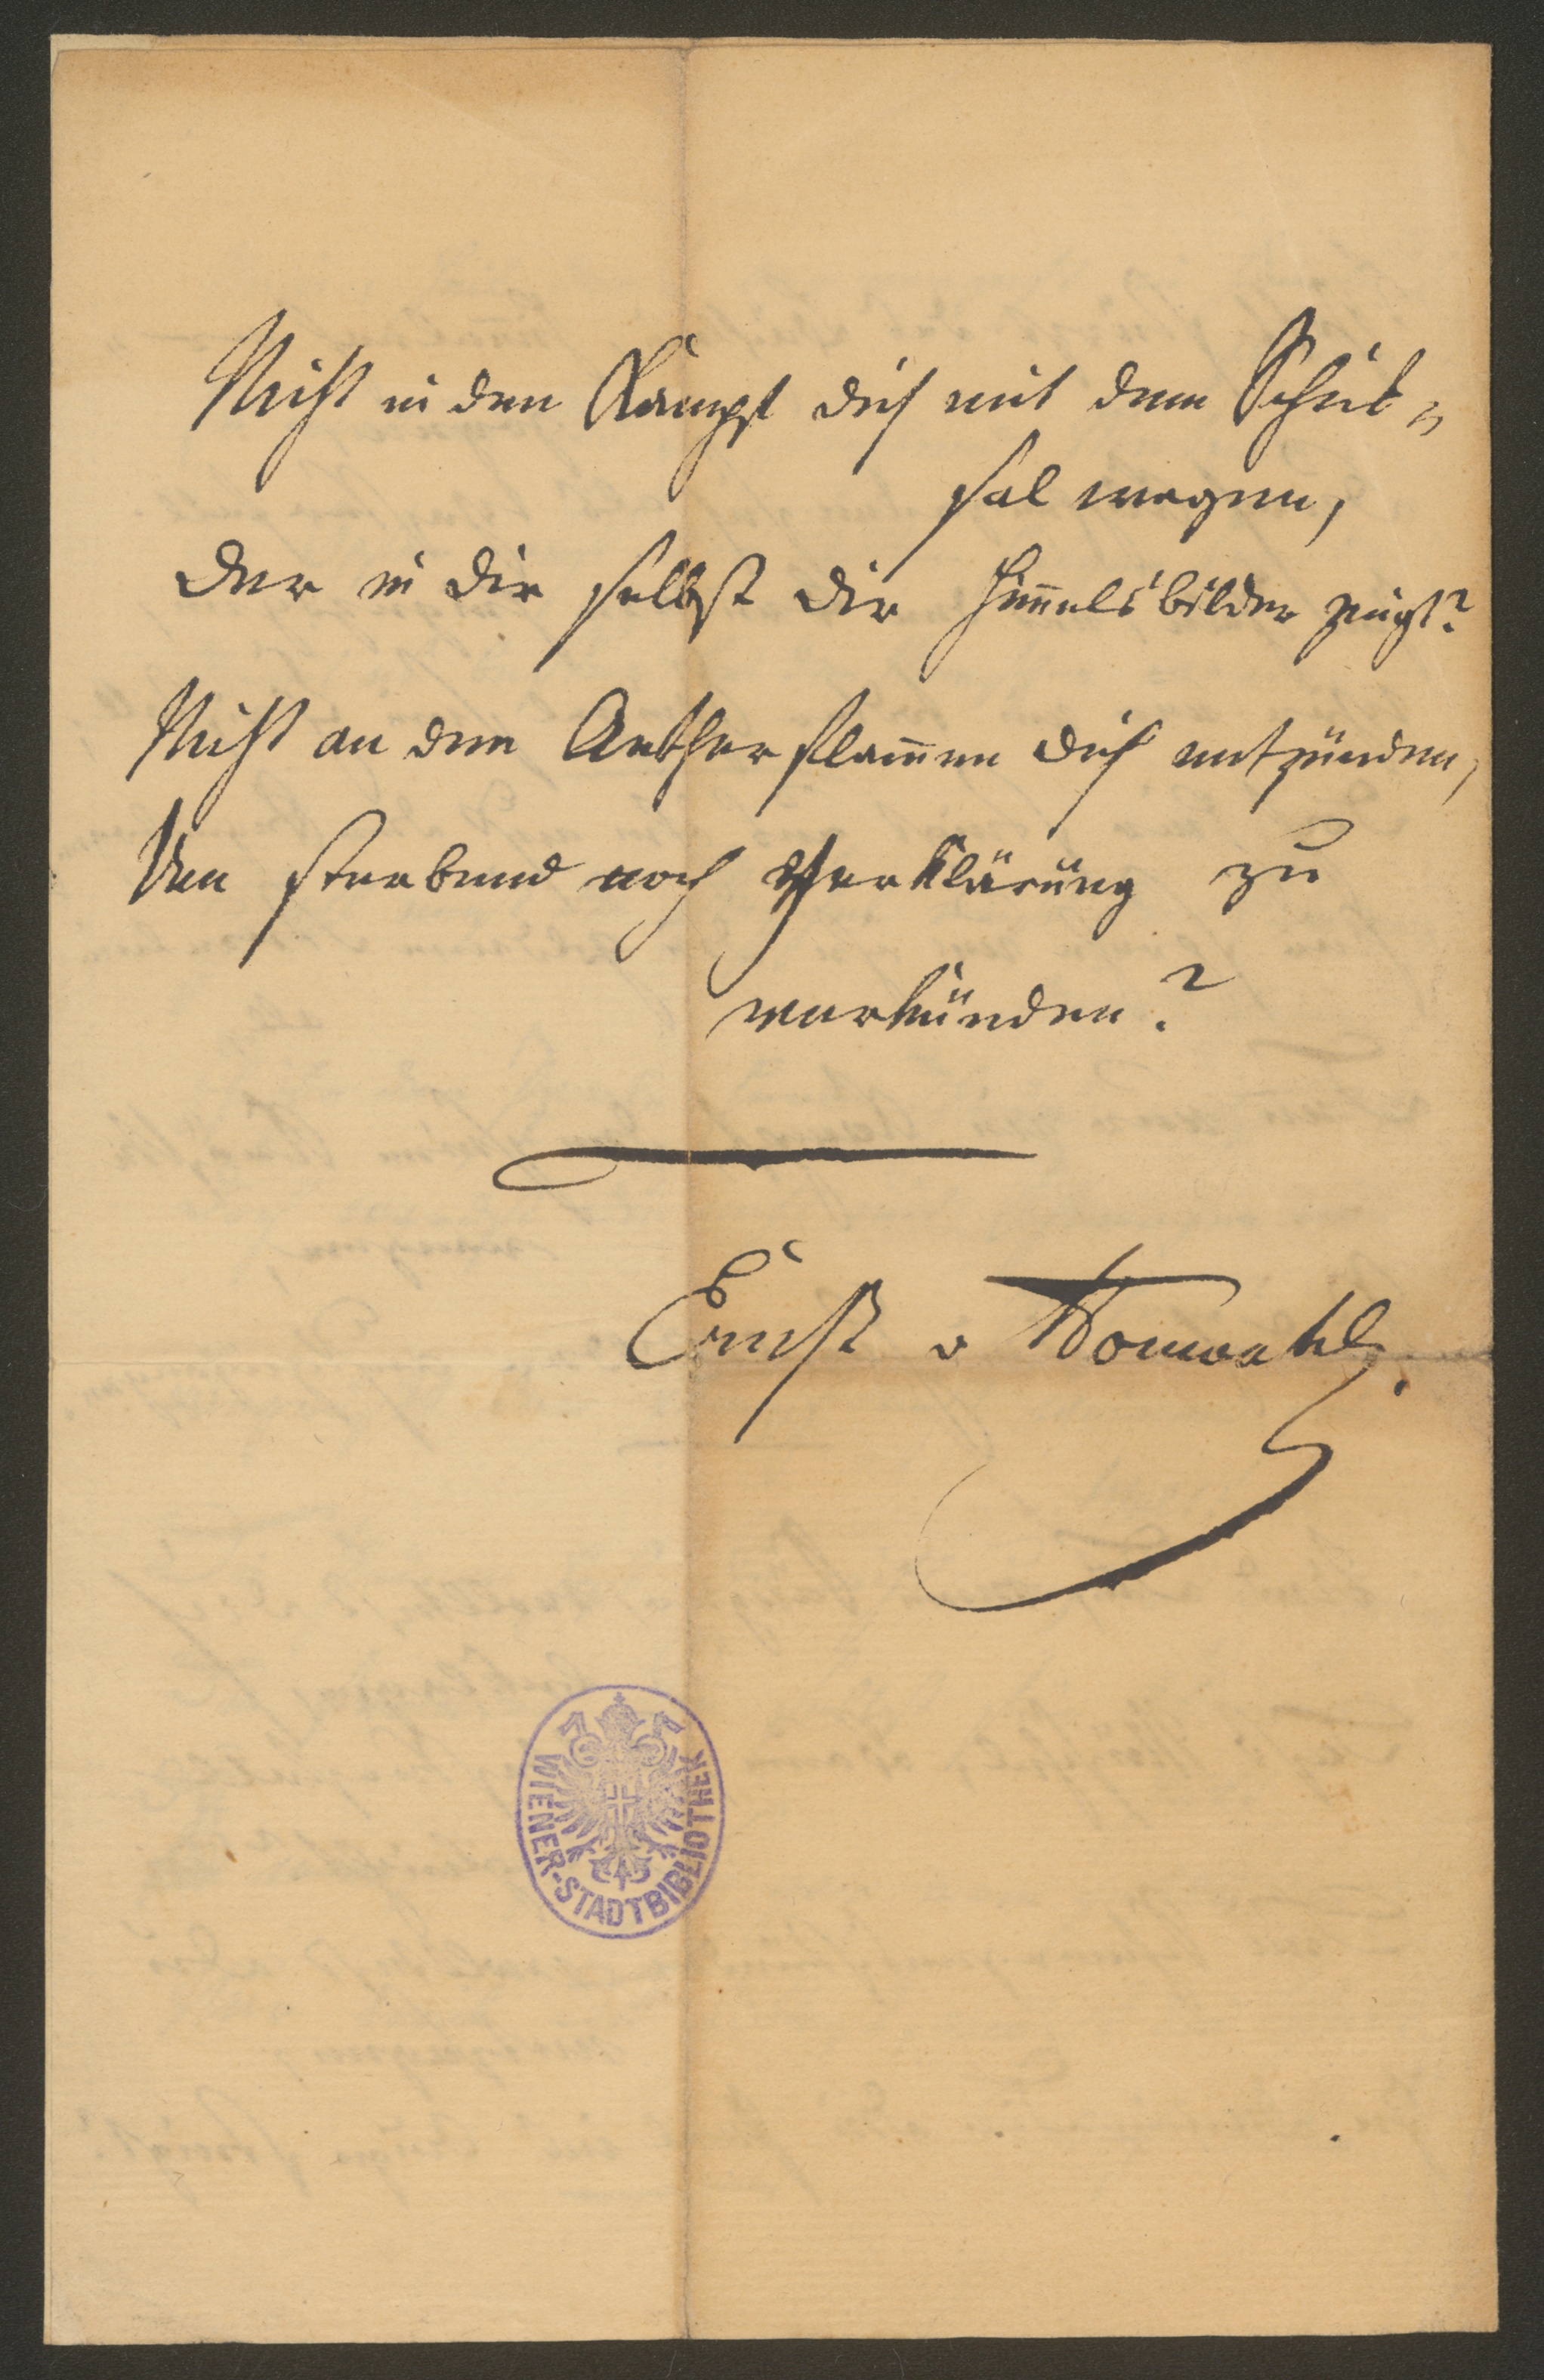 Nicht in den Kampf dich mit dem Schick-
sal wagen,
Der in dir selbst dir Him̅elsbilder zeigt?
Nicht an den Aetherflam̅en dich entzünden,
Um sterbend noch Verklärung zu
verkünden?
Ernst v
WIENER-STADTBIBLIOTHEK